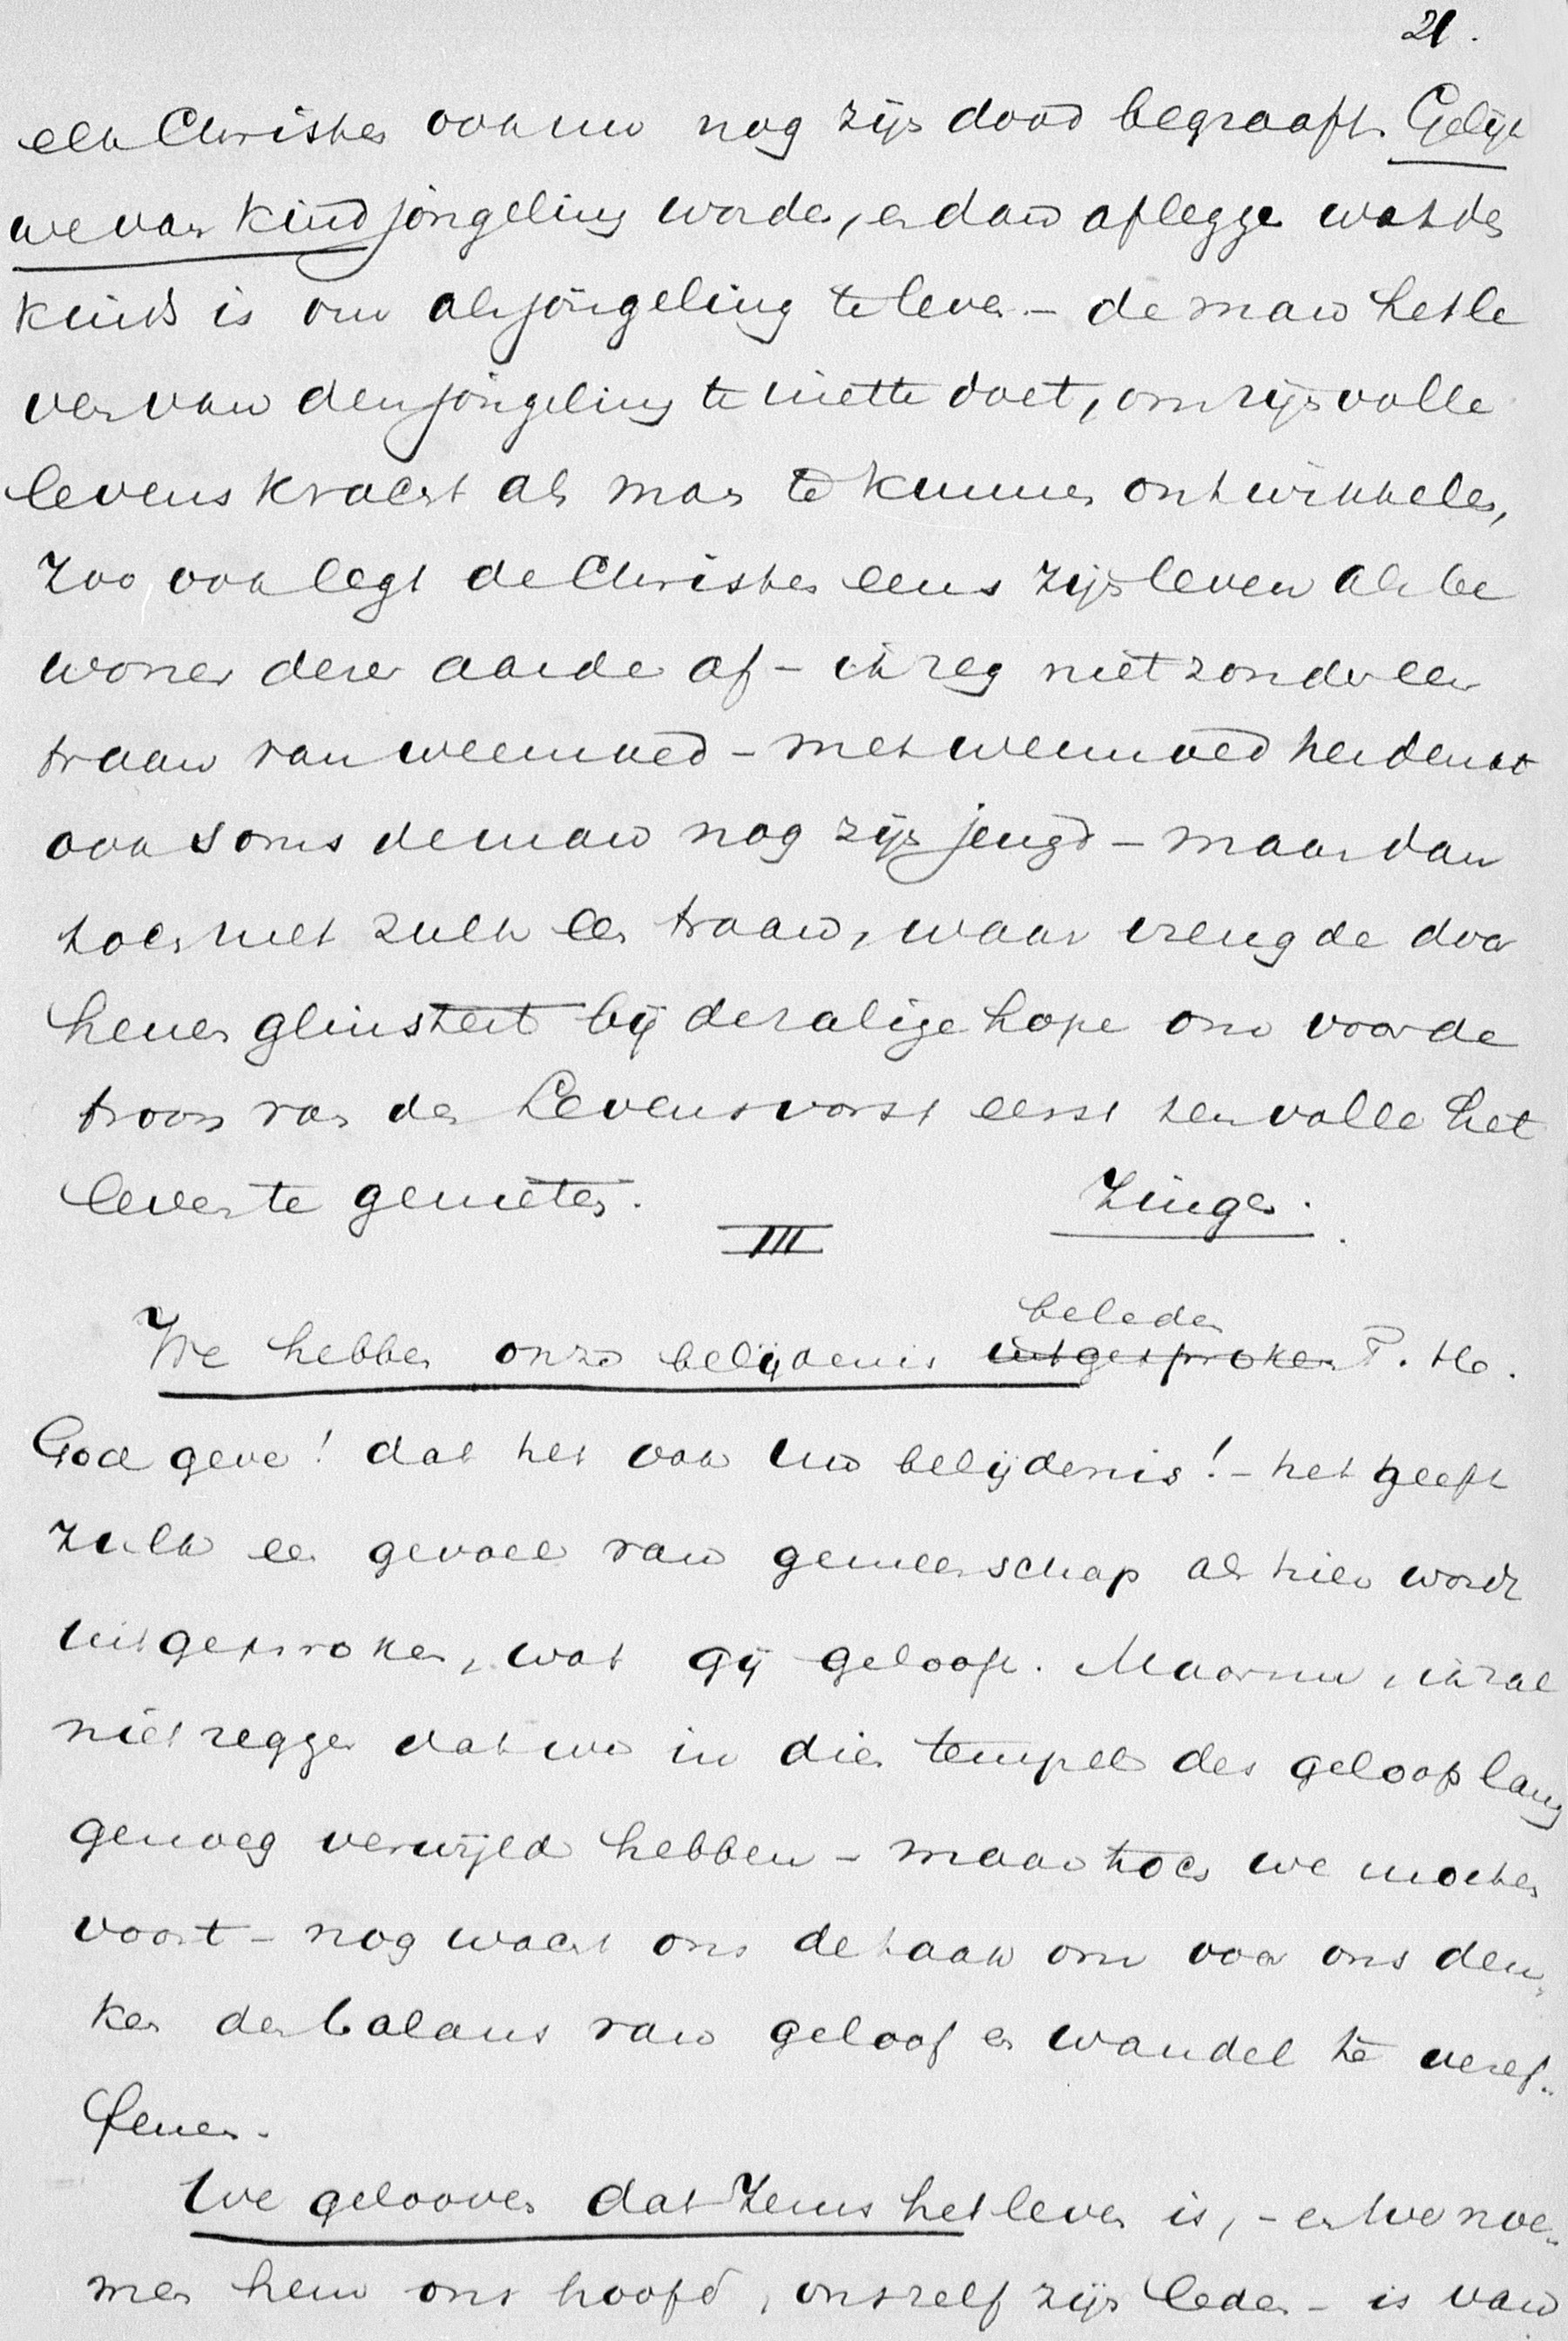 21.
elk Christen ook nu nog zijn dood begraaft. Gelijk
we van kind jongeling worden, en dan afleggen wat des
kinds is om als jongeling te leven - de man het le
ven van den jongeling te niette doet, om zijn volle
levenskracht als man te kunnen ontwikkelen,
zoo ook legt de Christen eens zijn leven als be
woner dezer aarde af - ik zeg niet zonder een
traan van weemoed - met weemoed herdenkt
ook soms de man nog zijn jeugd - maar dan
toch met zulk een traan, waar vreugde door
henen glinstert bij de zalige hope om voor de
troon van den Levensvorst eerst ten volle het
leven te genieten. Zingen.
III
beleden
We hebben onze belijdenis uitgesproken T. H.
God geve! dat het ook uw belijdenis! - het geeft
zulk een gevoel van gemeenschap als hier wordt
uitgesproken, wat gij gelooft. Maar nu, ik zal
niet zeggen dat we in dien tempel des geloofs lang
genoeg verwijld hebben - maar toch we moeten
voort - nog wacht ons de taak om voor ons den
ken de balans van geloof en wandel te veref-
fenen.
We gelooven dat Jezus het leven is, - en we noe-
men hem ons hoofd, onszelf zijn leden - is van